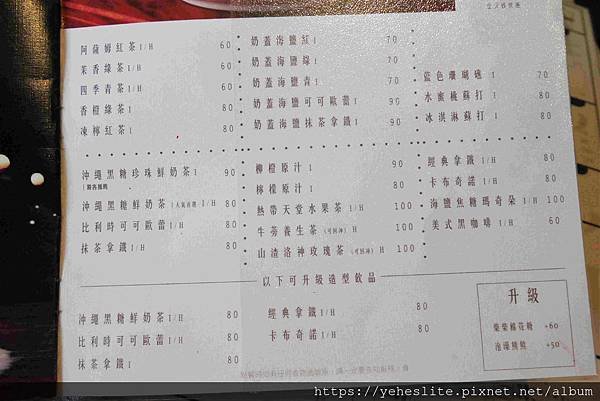 阿薩姆紅茶 I/H 60
茉香綠茶 I/H 60
四季青茶 I/H 60
香橙綠茶 I 80
凍檸紅茶 I 80
奶蓋海鹽紅 I 70
奶蓋海鹽綠 I 70
奶蓋海鹽青 I 70
奶蓋海鹽可可歐蕾 I 90
奶蓋海鹽抹茶拿鐵 I 90
藍色珊瑚礁 I 70
水蜜桃蘇打 I 70
冰淇淋蘇打 I 80
沖繩黑糖珍珠鮮奶茶 I 90
沖繩黑糖鮮奶茶 I人氣首選 I/H 80
比利時可可歐蕾 I/H 80
抹茶拿鐵 I/H 80
柳橙原汁 I 90
檸檬原汁 I 80
熱帶天堂水果茶 I/H 100
牛蒡養生茶 (可回沖) H 100
山渣洛神玫瑰茶 (可回沖) H 100
經典拿鐵 I/H 80
卡布奇諾 I/H 80
海鹽焦糖瑪奇朵 I/H 100
美式黑咖啡 I/H 60
以下可升級造型飲品
沖繩黑糖鮮奶茶 I/H 80
比利時可可歐蕾 I/H 80
抹茶拿鐵 I 80
經典拿鐵 I/H 80
卡布奇諾 I/H 80
升級
柴柴棉花糖 +60
泡澡熊熊 +50
https://yeheslite.pixnet.net/album